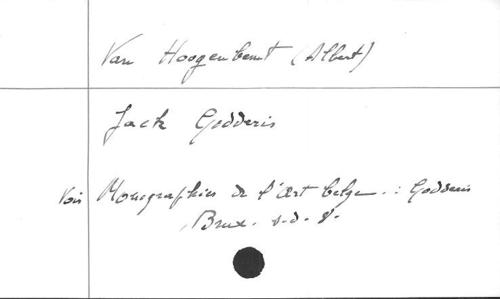 Van Hoogenbemt (Albert)
Jack Godderis
Voir Monographies de l'Art belge. : Godderis
Brux. s.d. 8°.